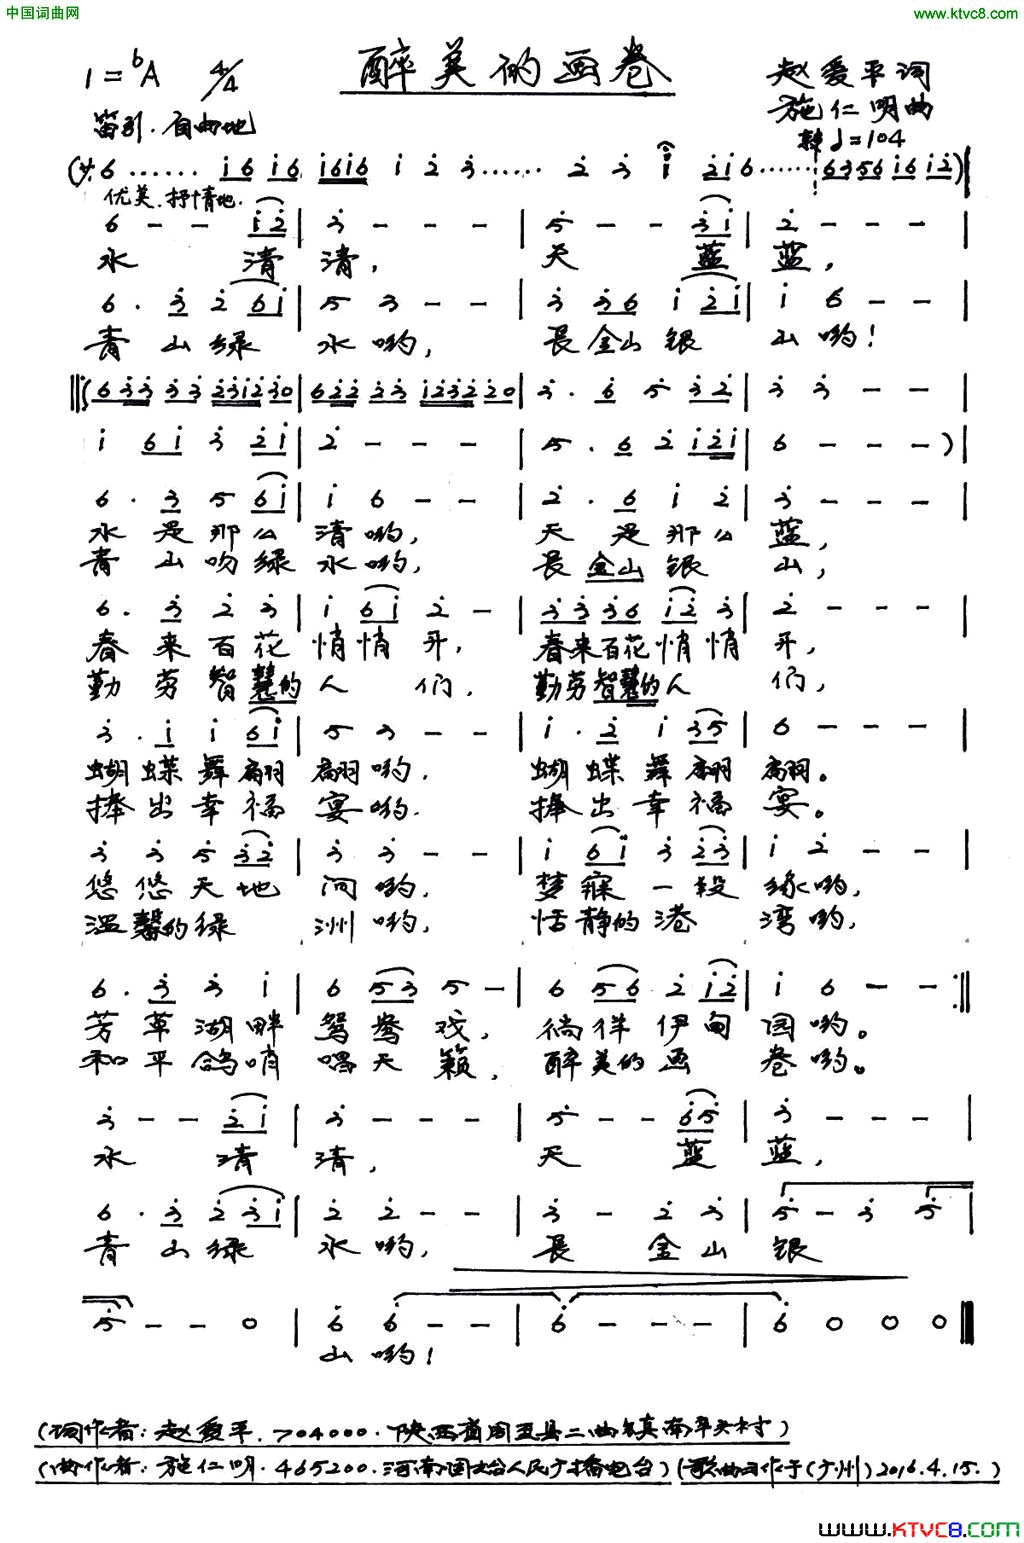 中国词曲网 www.ktvc8.com
醉美的画卷
1=♭A 4/4
赵爱平词
施仁明曲
笛引.自由地
♩=104
优美.抒情地.
水 清 清, 天 蓝 蓝,
青 山 绿 水 哟, 是 金 山 银 山 哟!
水 是 那 么 清 哟, 天 是 那 么 蓝,
青 山 吻 绿 水 哟, 是 金 山 银 山,
春 来 百 花 悄 悄 开, 春 来 百 花 悄 悄 开,
勤 劳 智 慧 的 人 们, 勤 劳 智 慧 的 人 们,
蝴 蝶 舞 翩 翩 哟. 蝴 蝶 舞 翩 翩。
捧 出 幸 福 宴 哟. 捧 出 幸 福 宴。
悠 悠 天 地 间 哟, 梦 寐 一 段 缘 哟,
温 馨 的 绿 洲 哟, 恬 静 的 港 湾 哟,
芳 草 湖 畔 鸳 鸯 戏, 徜 徉 伊 甸 园 哟。
和 平 鸽 哨 唱 天 籁, 醉 美 的 画 卷 哟。
水 清 清, 天 蓝 蓝,
青 山 绿 水 哟, 是 金 山 银
山 哟!
(词作者:赵爱平.704000.陕西省周至县二曲镇南辛头村)
(曲作者:施仁明.465200.河南固始人民广播电台)(歌曲写作于(广州)2016.4.15.)
www.KTVC8.com